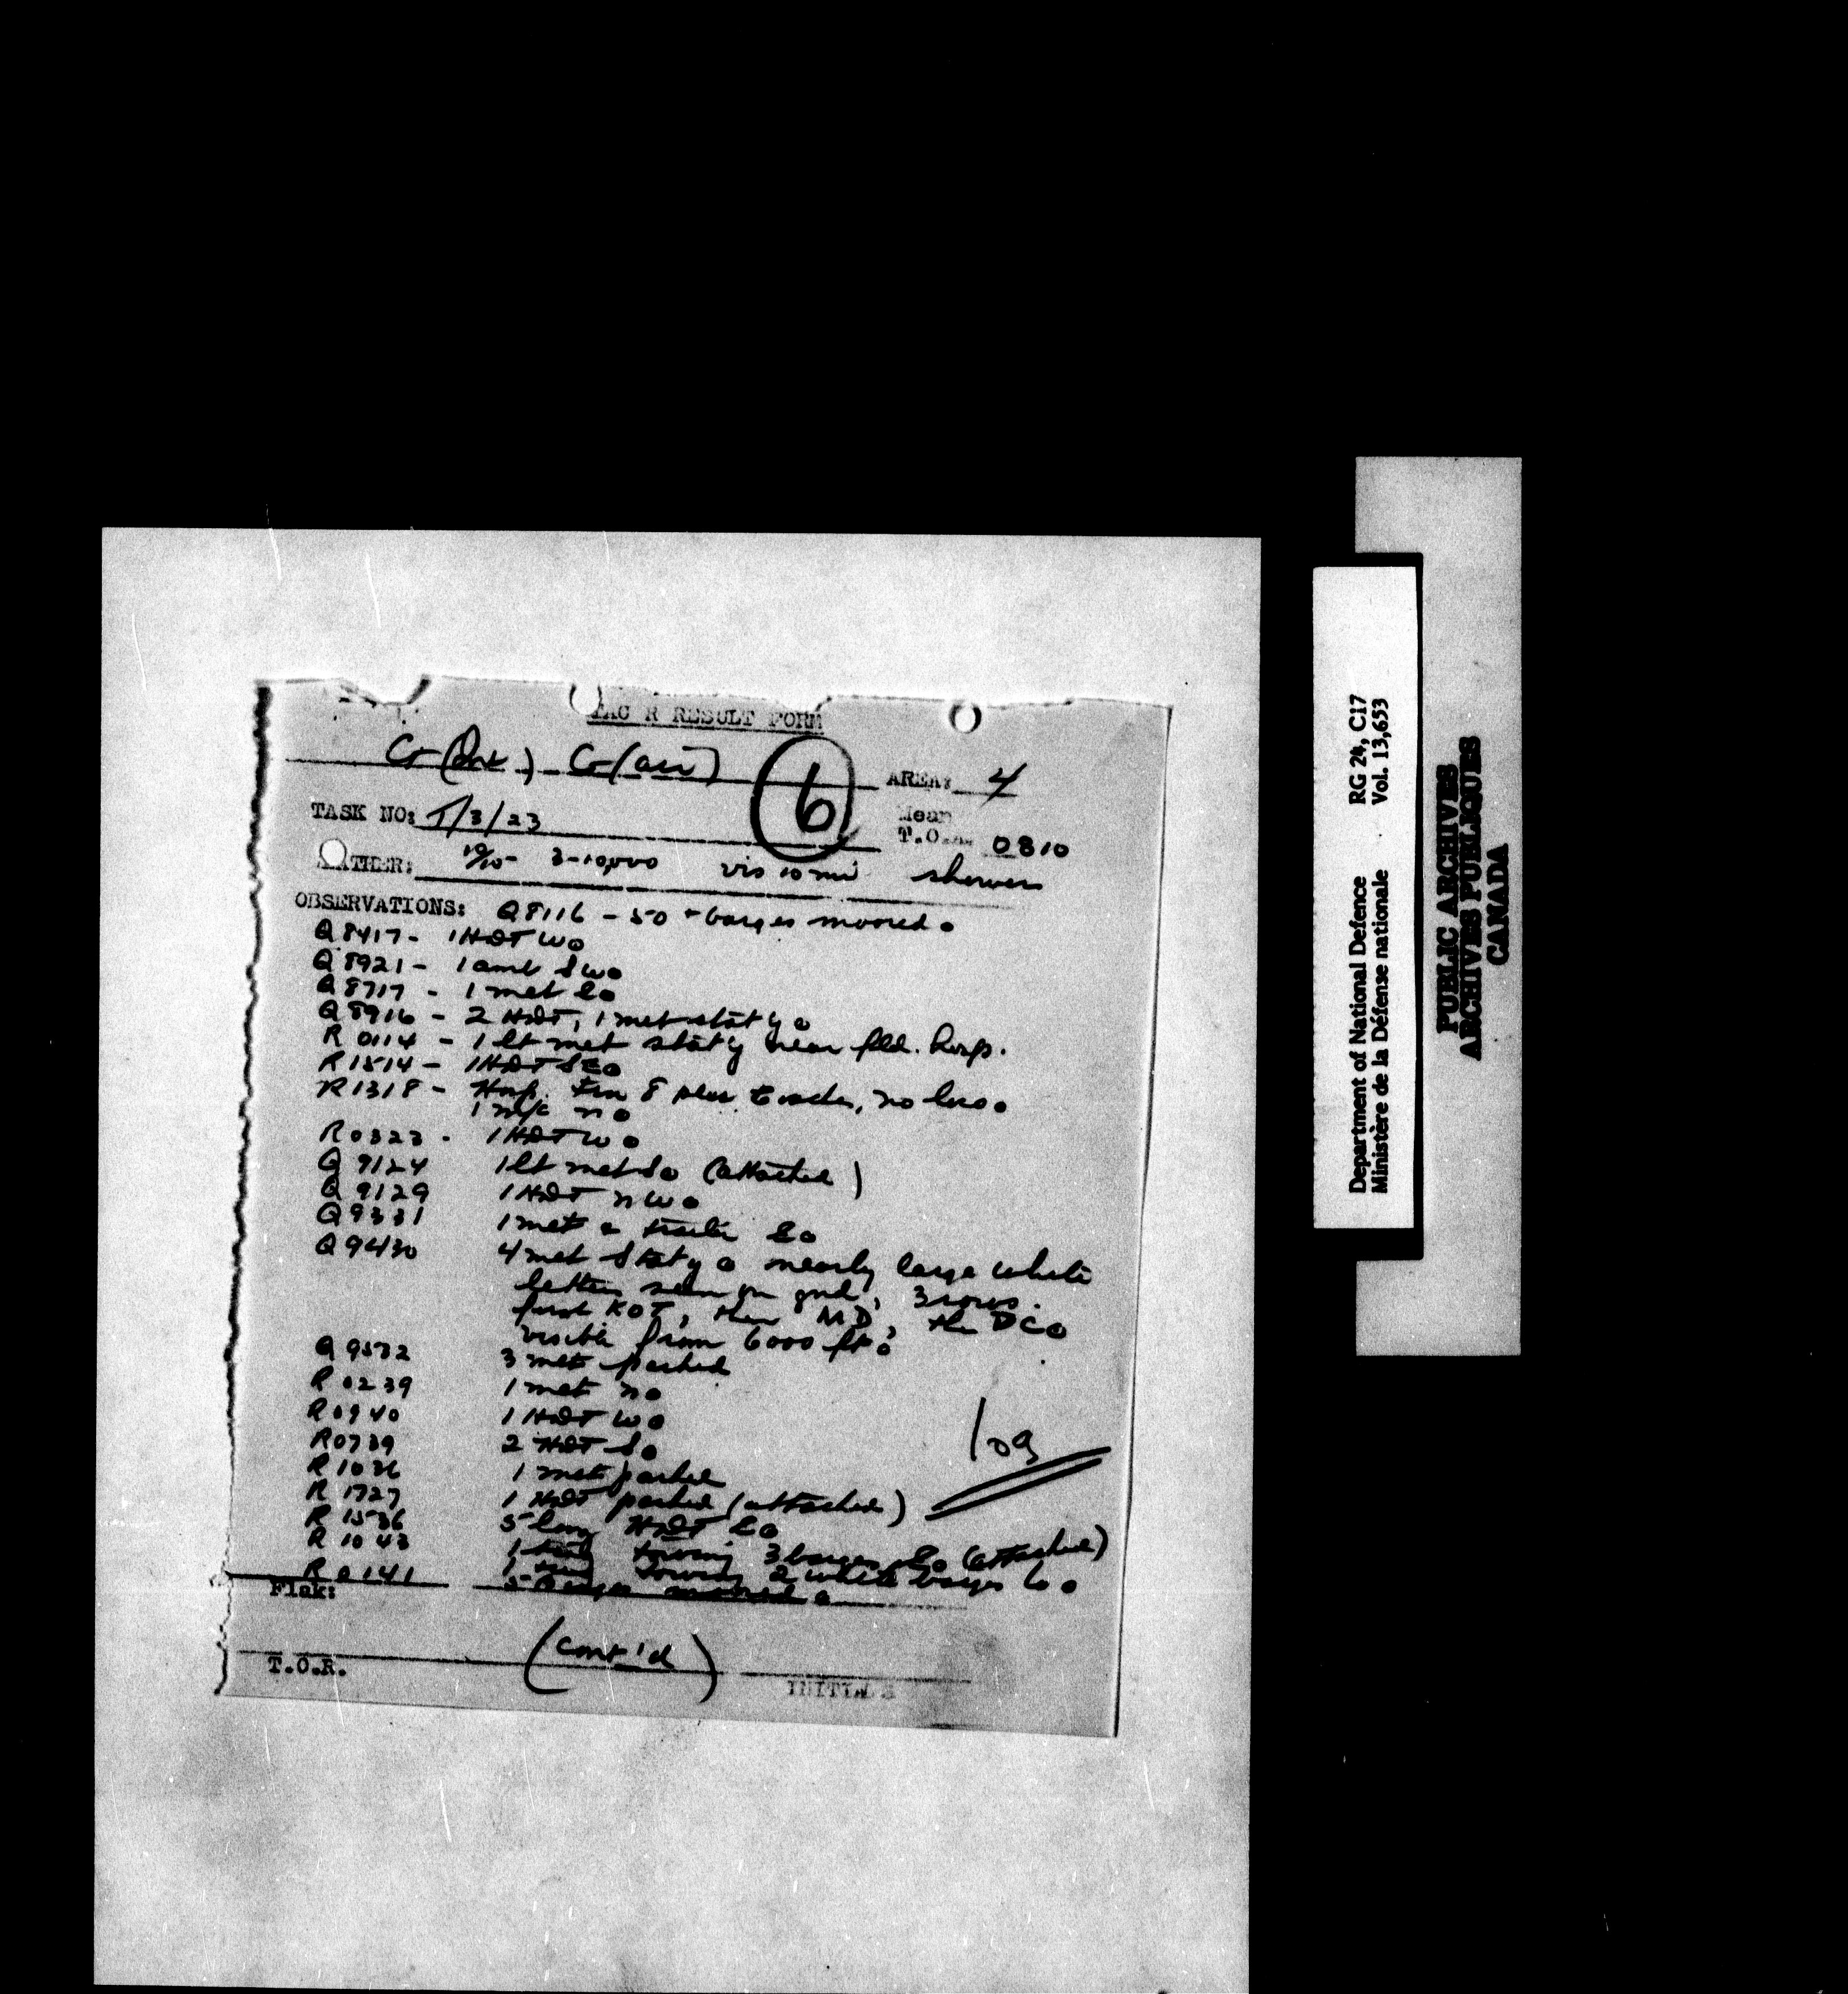 TAC R RESULT FORM
G (Int) G (air)
6
AREA: 4
TASK NO: T/3/23
Mean
T.O. 0810
WEATHER: 10/10 - 3-10,000 vis 10 mi showers
OBSERVATIONS: Q8116 - 50 + barges moored o
Q8417 - 1 HDT W o
Q8921 - 1 amb SW o
Q8717 - 1 met E o
Q8916 - 2 HDT, 1 met stat'y o
R 0114 - 1 lt met stat'y near fld. hosp.
R1514 - 1 HDT SE o
R1318 - Hosp. trn 8 plus coaches, no loco o
1 m/c N o
R0323 - 1 HDT W o
Q 9124 1 lt met S o (attacked)
Q 9129 1 HDT NW o
Q9331 1 met & trailer E o
Q9430 4 met stat'y o nearby large white
letters seen on gnd, 3 rows.
first KOT, then MD, then DC o
visible from 6000 ft o
Q 9532 3 met parked
R 0239 1 met N o
R0940 1 HDT W o
R0739 2 HDT S o
R 1036 1 met parked
R 1727 1 HDT parked (attacked)
R 1536 5 long HDT E o
R 1043 1 tug towing 3 barges (attacked)
1 tug towing 2 white barges
R 0141 5 barges moored o
log
Flak:
(cont'd)
T.O.R.
INITIALS
Department of National Defence RG 24, C17
Ministère de la Défense nationale Vol. 13,653
PUBLIC ARCHIVES
ARCHIVES PUBLIQUES
CANADA